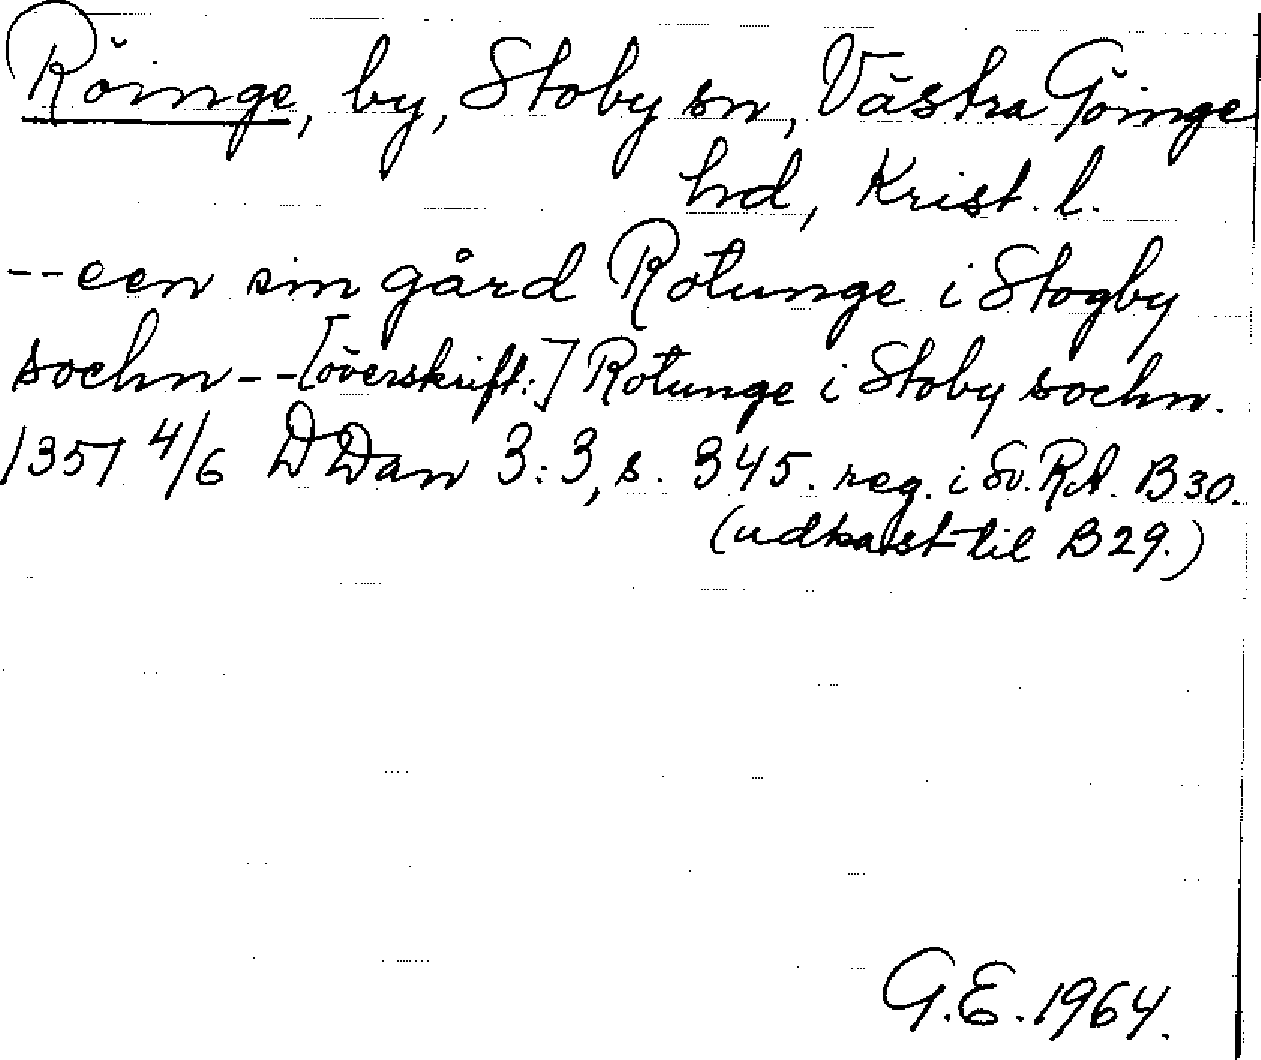 Röinge, by, Stoby sn, Västra Göinge
hd, Krist. l.
--een sin gård Rotunge i Stogby
sochn--[överskrift:] Rotunge i Stoby sochn.
1351 4/6 DDan 3:3, s. 345. reg. i Sv. RA. B30.
(udkast til B29.)
G.E. 1964.